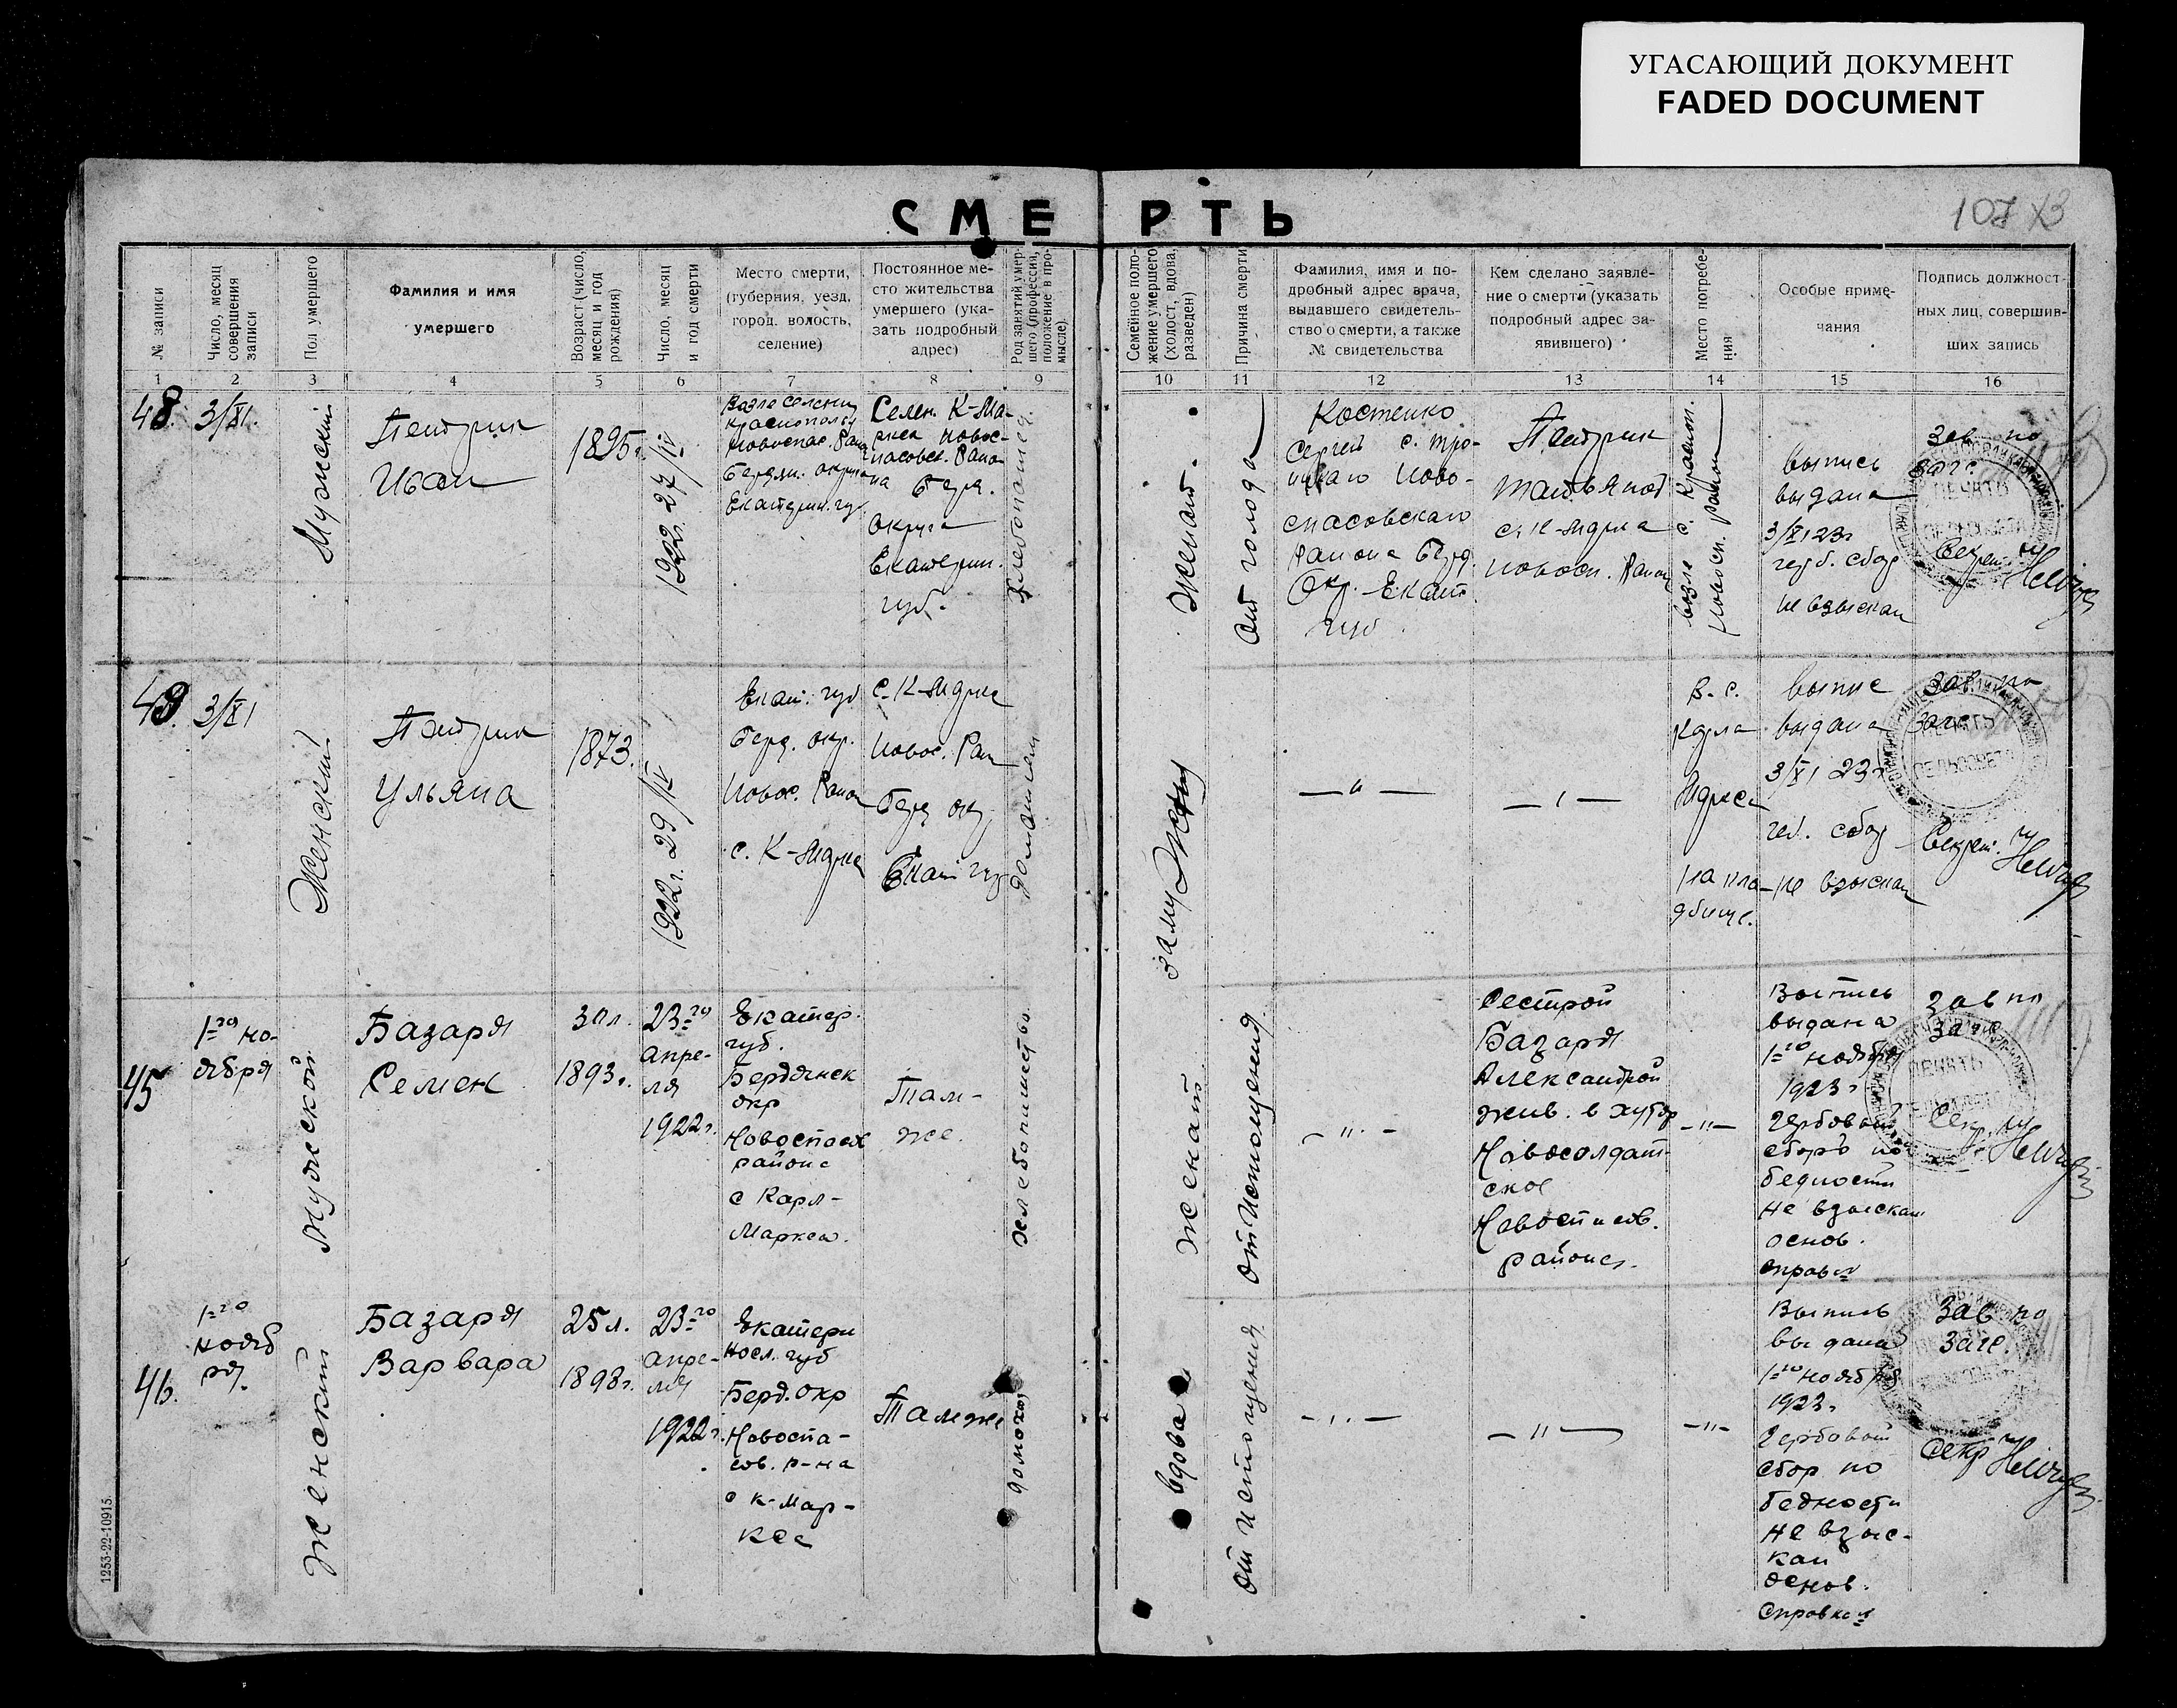 УГАСАЮЩИЙ ДОКУМЕНТ
FADED DOCUMENT
СМЕРТЬ
107
№ записи
Число, месяц
совершения
записи
Пол умершего
Фамилия и имя
умершего
Возраст (число,
месяц и год
рождения)
Число, месяц
и год смерти
Место смерти,
(губерния, уезд,
город, волость,
селение)
Постоянное ме-
сто жительства
умершего (ука-
зать подробный
адрес)
Род занятий умер-
шего (профессия,
положение в про-
мысле).
Семейное поло-
жение умершего
(холост, вдова,
разведен)
Причина смерти
Фамилия, имя и по-
дробный адрес врача,
выдавшего свидетель-
ство о смерти, а также
№ свидетельства
Кем сделано заявле-
ние о смерти (указать
подробный адрес за-
явившего)
Место погребе-
ния
Особые приме-
чания
Подпись должност-
ных лиц, совершив-
ших запись
1 2 3 4 5 6 7 8 9 10 11 12 13 14 15 16
48.
3/XI.
Мужеский
Иван
1895г.
1922г. 27/IV
Возле селения
Екатерин. гу.
Селен. К-Ма-
ркса Новос-
пасовск. Райо-
на Берд.
округа
Екатерин.
губ.
Хлебопашец.
Женат.
От голода
Костенко
Сергей с. Тро-
ицкаго Ново-
спасовскаго
Района Берд.
Окр. Екат.
губ.
с. К-Маркса
Новосп. Район
возле с. Красноп.
Новосп. район
Выпись
выдана
3/XI 23г
герб. сбор
не взыскан
Зав по
загс.
Секрет.
49.
3/XI
Женский
Ульяна
1873.
1922г. 29/IV
Екат. губ
Берд. окр.
Новос. Район
с. К-Маркса
с. К-Маркса
Новос. Рай
Берд окр
Екат губ
домашнем
замужем
— " —
— " —
в. с.
Карла
Маркса
на кла-
дбище.
Выпис
выдана
3/XI 23г
гер. сбор
не взыскан
Зав по
Загс
Секрет.
45
1-го но-
ября
Мужеской
Базаря
Семен
30л.
1893г.
23-го
апре-
ля
1922г.
Екатер.
губ.
Бердянск
окр
Новоспасск
районе
с Карл-
Маркса.
Там-
же.
Хлебопашество.
женат
от истощения
- " -
Сестрой
Базаря
Александрой
жив. в хутор
Новосолдат-
ское
Новоспасов.
района.
- " -
Выпись
выдана
1-го ноября
1923г
Гербовый
сборъ по
бедности
не взыскан
основ.
справка
Зав по
Загс
Секр.
46.
1-го
нояб
ря.
Женский
Базаря
Варвара
25л.
1898г.
23-го
апре-
ля
1922г.
Екатери
носл. губ
Берд. окр
Новоспа-
сов. р-на
с К-Мар-
кса
Тамже
домохоз
вдова
от истощения
- " -
- " -
- " -
Выпись
выдана
1-го ноября
1923г
Гербовый
сбор по
бедности
не взыс-
кан
основ.
справка
Зав по
Загс.
Секр
1253-22-10915.